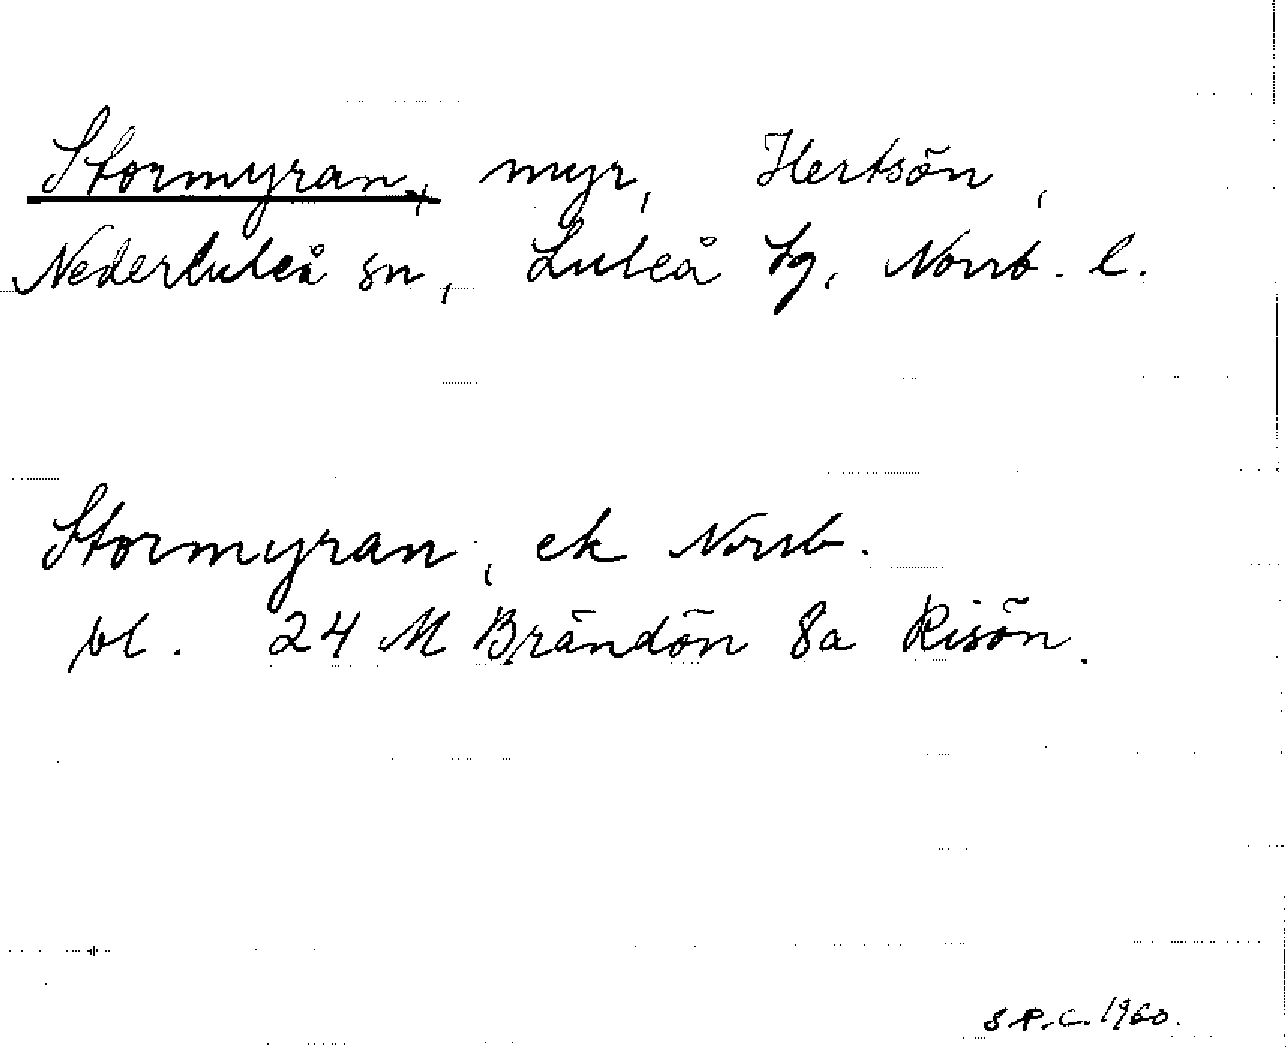 Stormyran, myr, Hertsön,
Nederluleå sn, Luleå tg, Norrb. l.
Stormyran, ek Norrb.
bl. 24 M Brändön 8a Risön.
S.P.C. 1960.